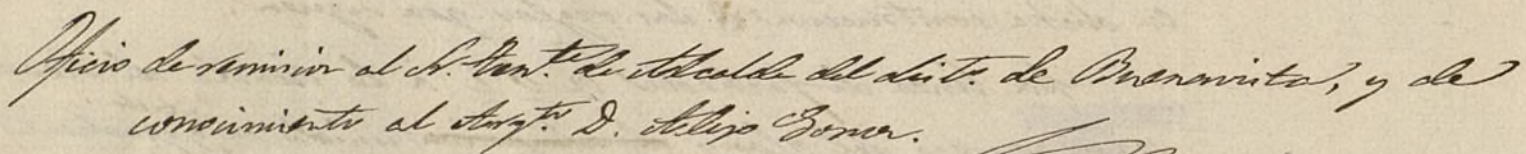 Oficio de remision al Sr. Ten.te de Alcalde del dist.o de Buenavista, y de
conocimiento al Arq.to D. Alejo Gomez.